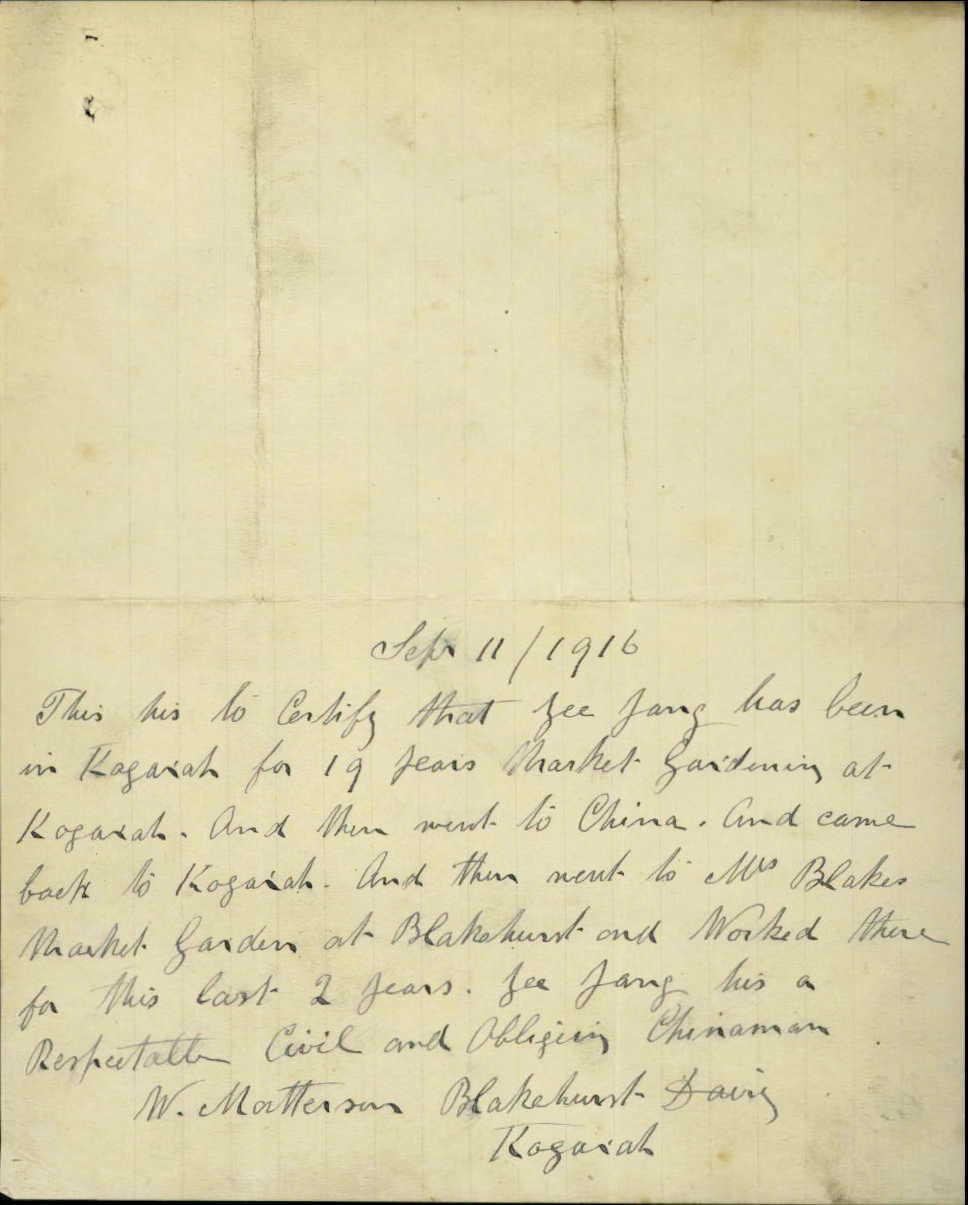 Sep 11/1916
This his to Certify that Yee Jang has been
in Kogarah for 19 years Market Gardening at
Kogarah. And then went to China. And came
back to Kogarah. And then went to Mrs Blakes
Market Garden at Blakehurst and Worked there
for this last 2 years. Yee Jang his a
Respectable Civil and Obliging Chinaman
W. Matterson Blakehurst Dairy
Kogarah